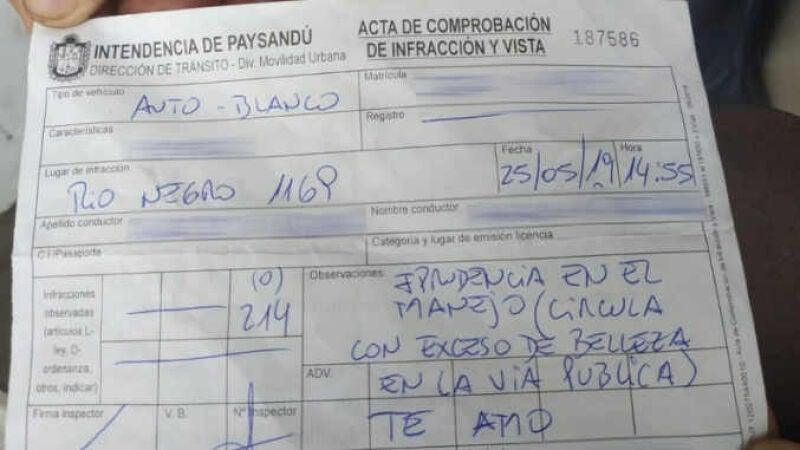 INTENDENCIA DE PAYSANDÚ
DIRECCIÓN DE TRÁNSITO - Div. Movilidad Urbana
ACTA DE COMPROBACIÓN
DE INFRACCIÓN Y VISTA
187586
Tipo de vehículo
AUTO - BLANCO
Matrícula
Características
Registro
Lugar de infracción
RIO NEGRO 1169
Fecha
25/05/19
Hora
14:55
Apellido conductor
Nombre conductor
C.I/Pasaporte
Categoría y lugar de emisión licencia
Infracciones
observadas
(artículos L-
ley, O-
ordenanza,
otros, indicar)
(O)
214
Observaciones
EN EL
MANEJO (CIRCULA
CON EXCESO DE BELLEZA
ADV.
EN LA VIA PUBLICA)
TE AMO
Firma Inspector
V. B.
Nº Inspector